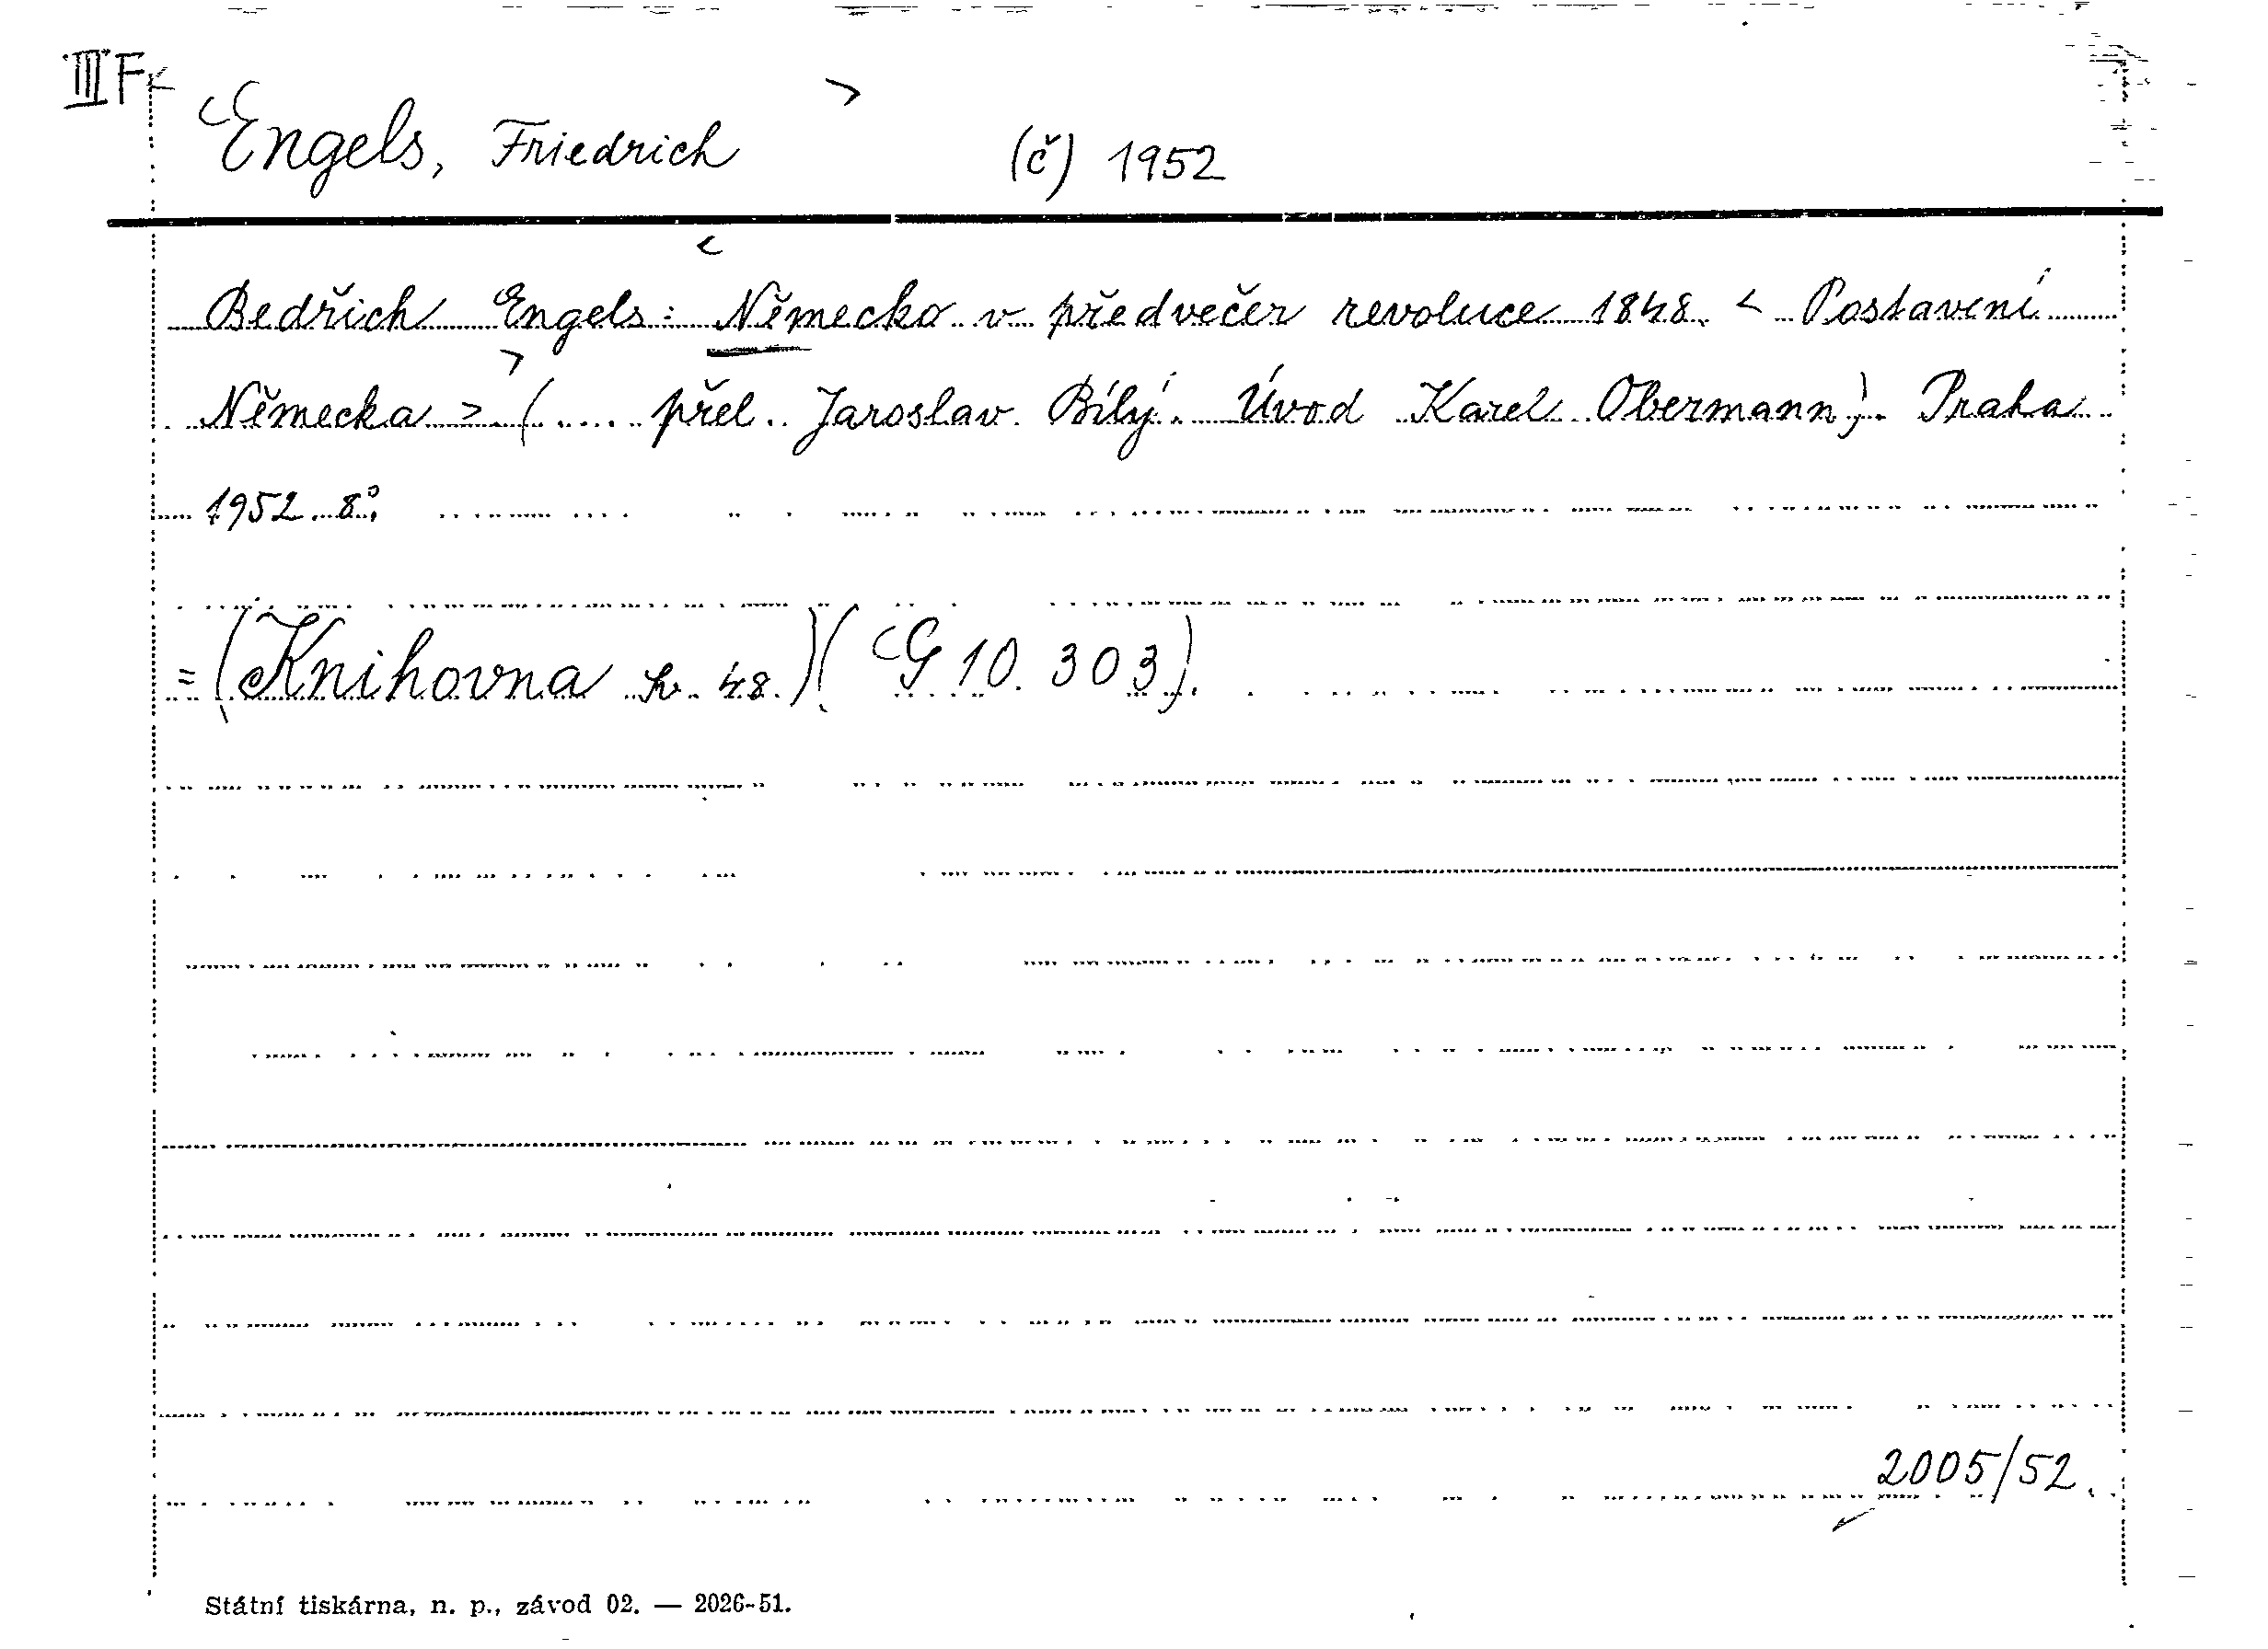 III F <
<Engels, Friedrich > (č) 1952
<
Bedřich Engels: Německo v předvečer revoluce 1848. < Postavení
>
Německa > ( ..... přel. Jaroslav Bílý. Úvod Karel Obermann). Praha
1952. 8°.
= (Knihovna sv. 48.)( <G 10.303).
2005/52.
Státní tiskárna, n. p., závod 02. — 2026-51.